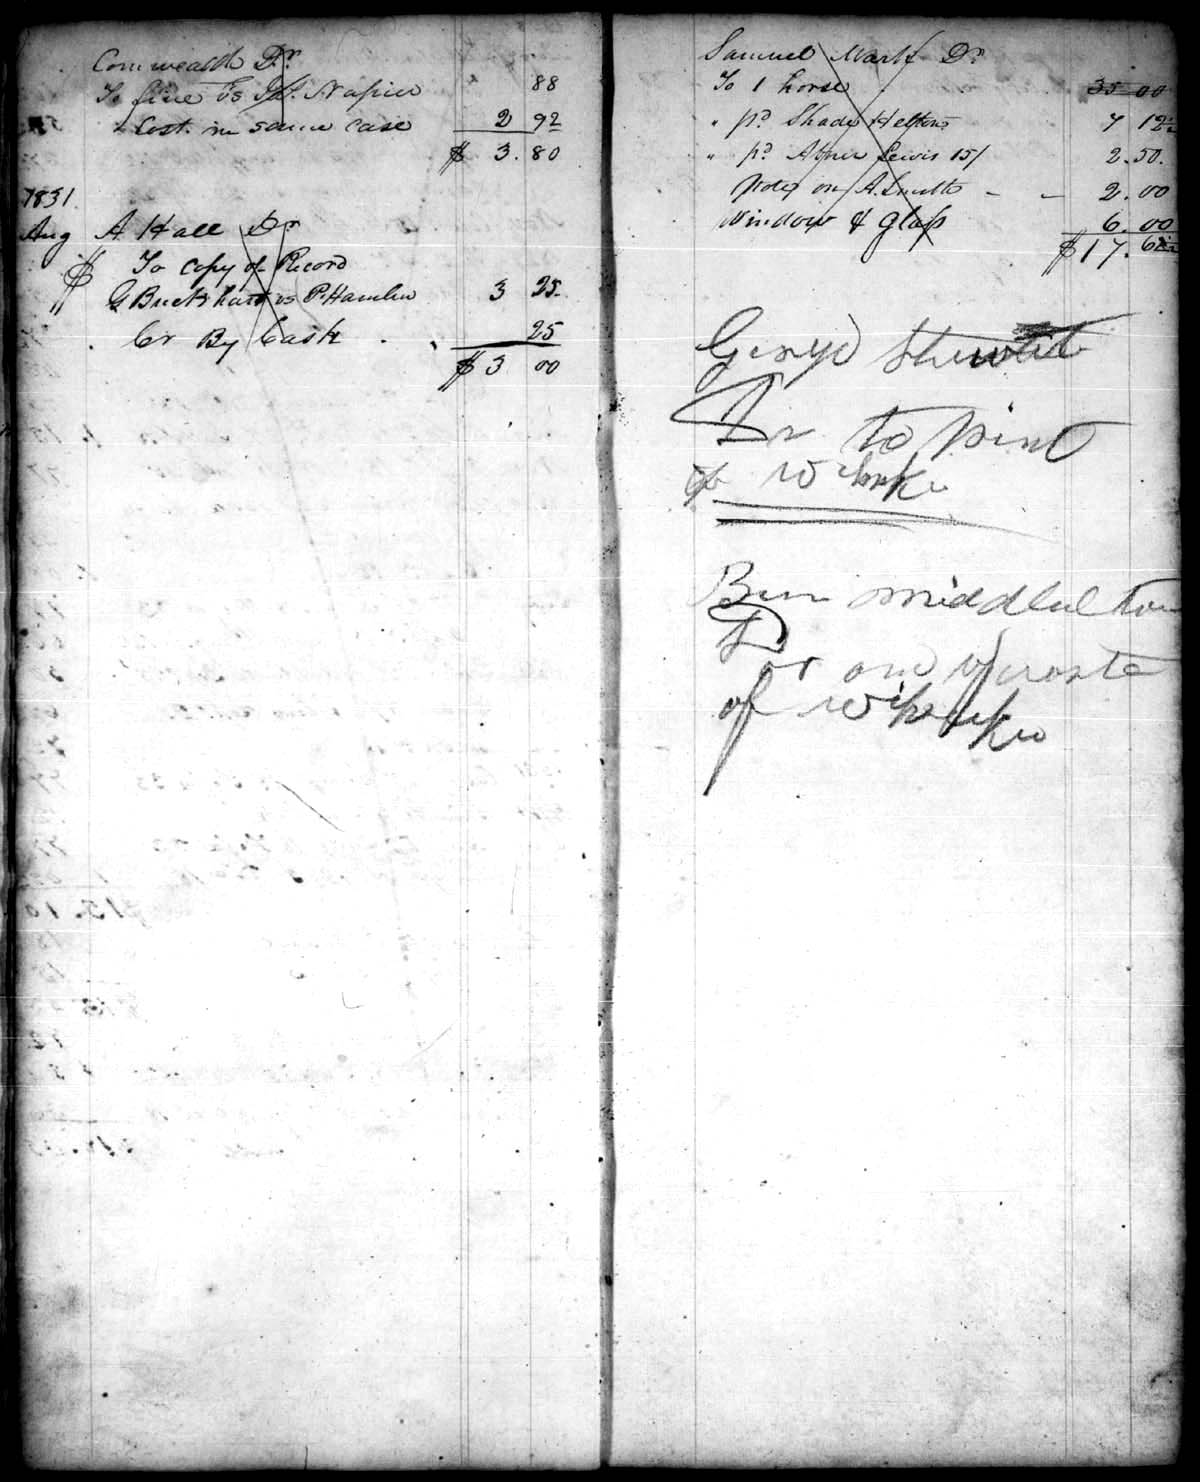 Comwealth Dr
To fine vs Jas. Napier 88
" Cost. in same case 2 92
$ 3.80
1831.
Aug A Hall Dr
$ To copy of Record
G Buckhart vs P. Hamlin 3 25.
Cr By Cash . 25
$ 3 00
Samuel Dr
To 1 horse 35 00
" pd Shade Helton 7 12½
" pd Abner Lewis 15/ 2.50.
Note on A. Smith - - 2.00
Window & Glass 6.00
$17.62½
George
Dr to pint
of Wiskey
Ben middleton
D
or one quarte
of